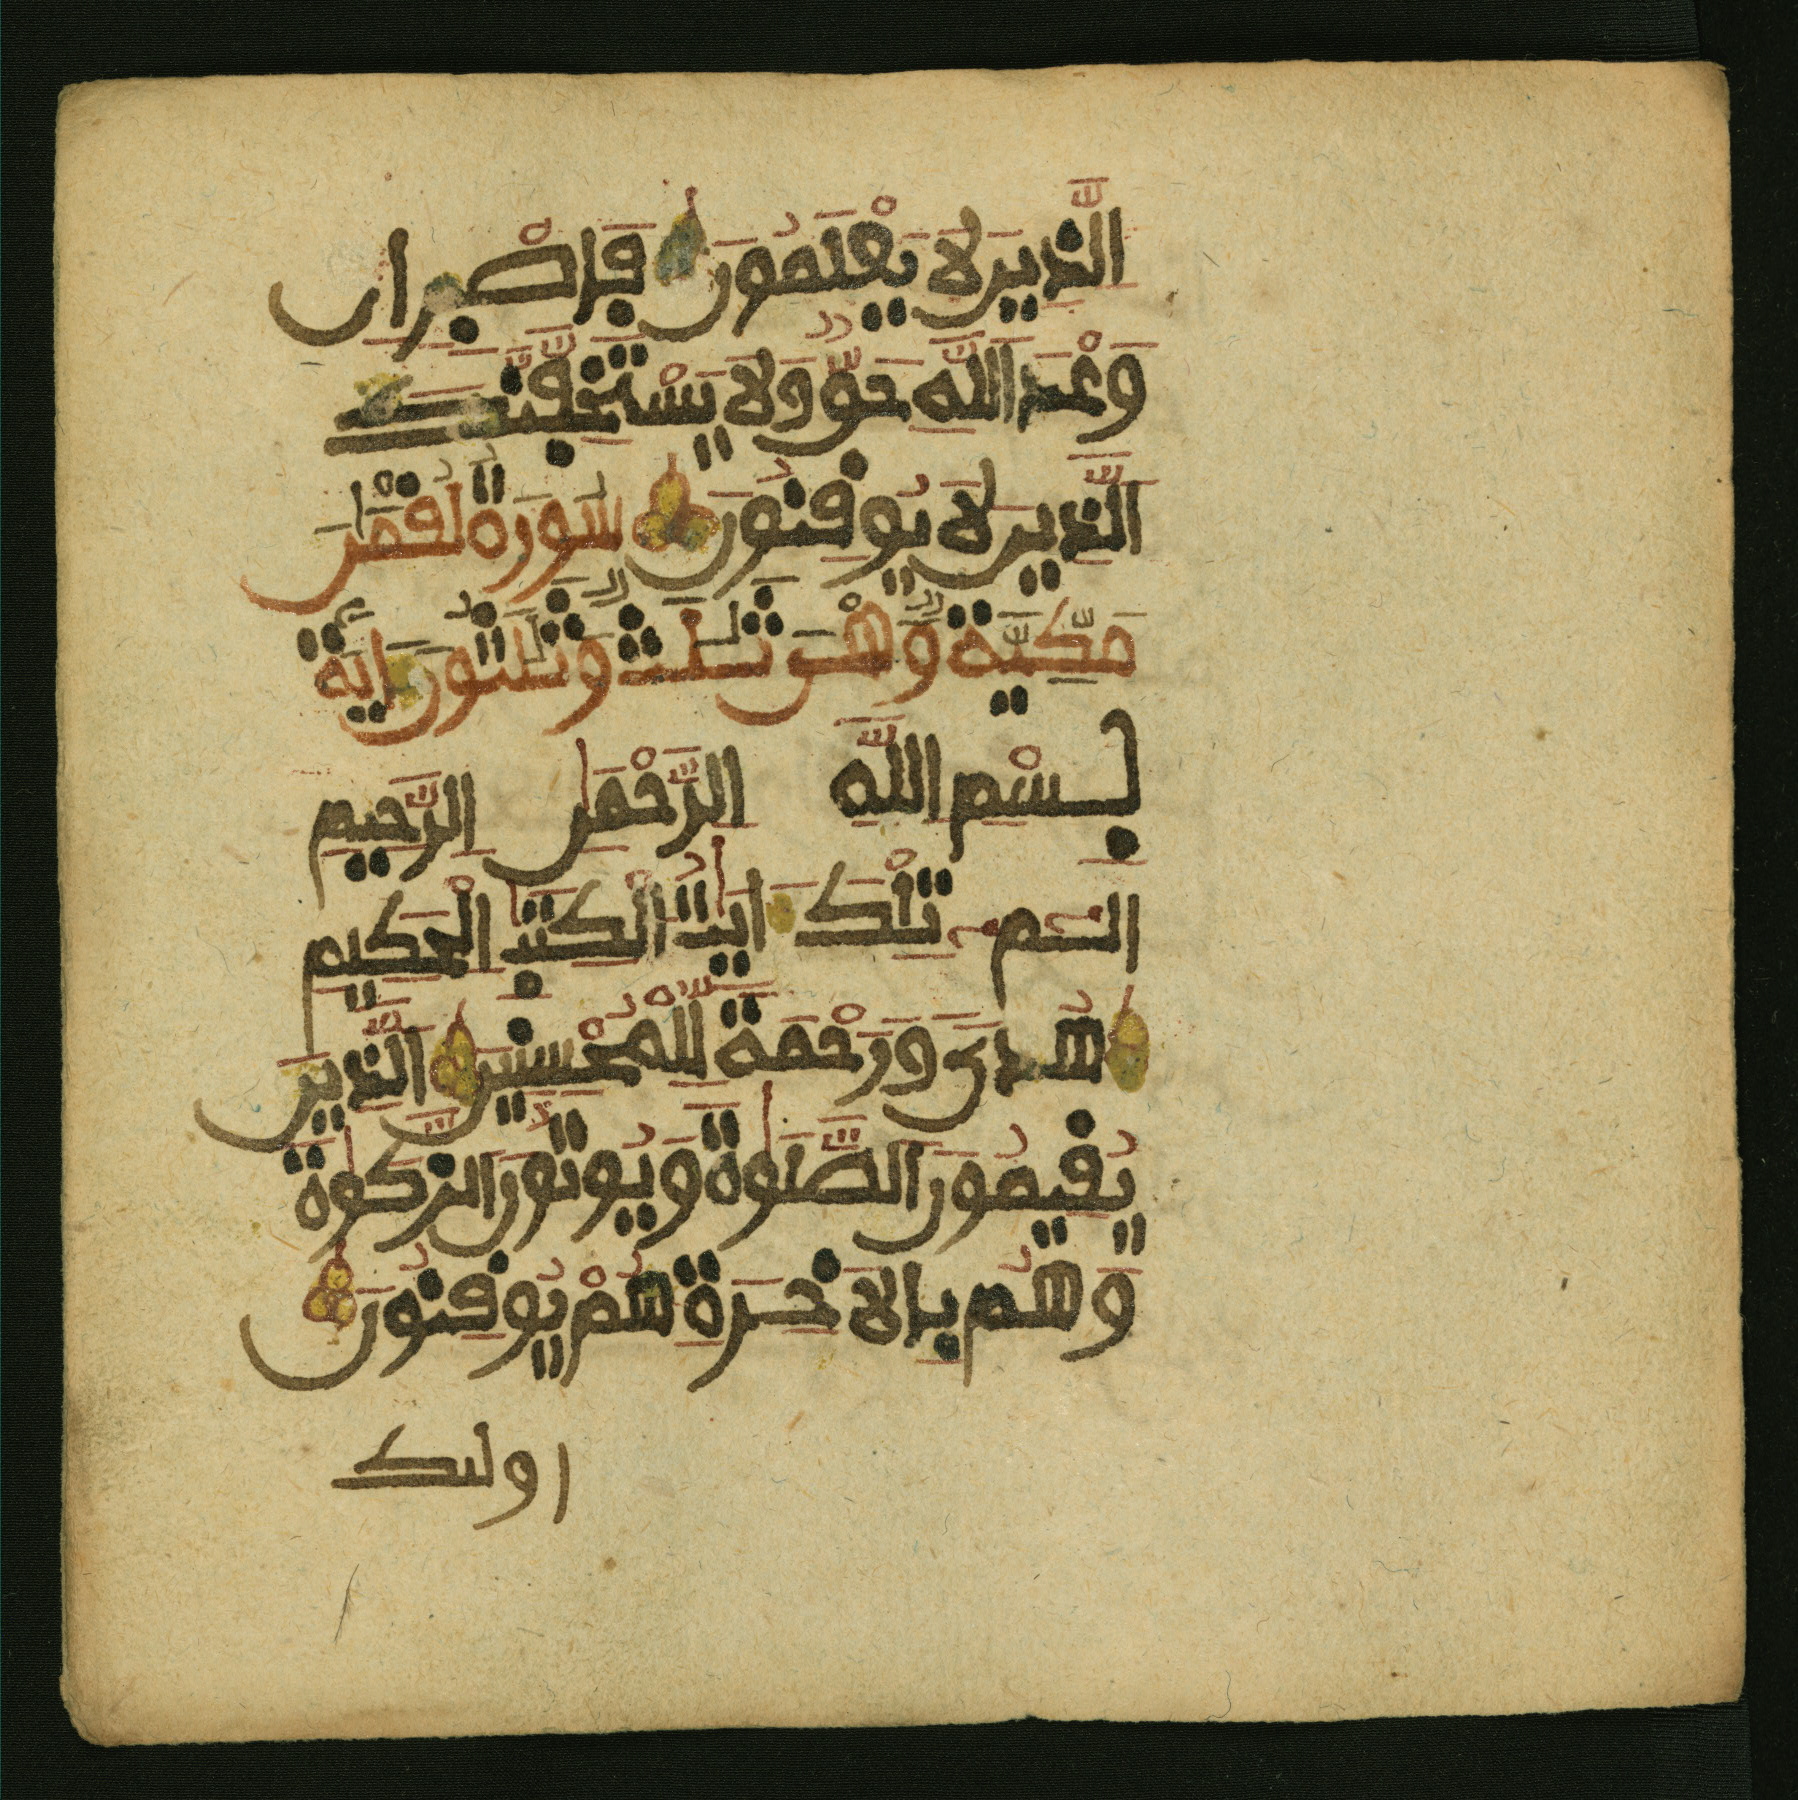 الَّذِينَ لَا يَعْلَمُونَ فَاصْبِرِ انَّ
وَعْدَ اللَّهِ حَقٌّ وَلَا يَسْتَخِفَّنَّكَ
الَّذِينَ لَا يُوقِنُونَ سُورَةُ لُقْمَٰنَ
مَكِّيَّةٌ وَهْىَ ثَلَٰثٌ وَثَلَٰثُونَ ايَةً
بِسْمِ اللَّهِ الرَّحْمَٰنِ الرَّحِيمِ
الٓمٓ تِلْكَ ايَٰتُ الْكِتَٰبِ الْحَكِيمِ
هُدىً وَرَحْمَةً لِّلْمُحْسِنِينَ الَّذِينَ
يُقِيمُونَ الصَّلَوٰةَ وَيُوتُونَ الزَّكَوٰةَ
وَهُم بِالَاخِرَةِ هُمْ يُوقِنُونَ
اولىك